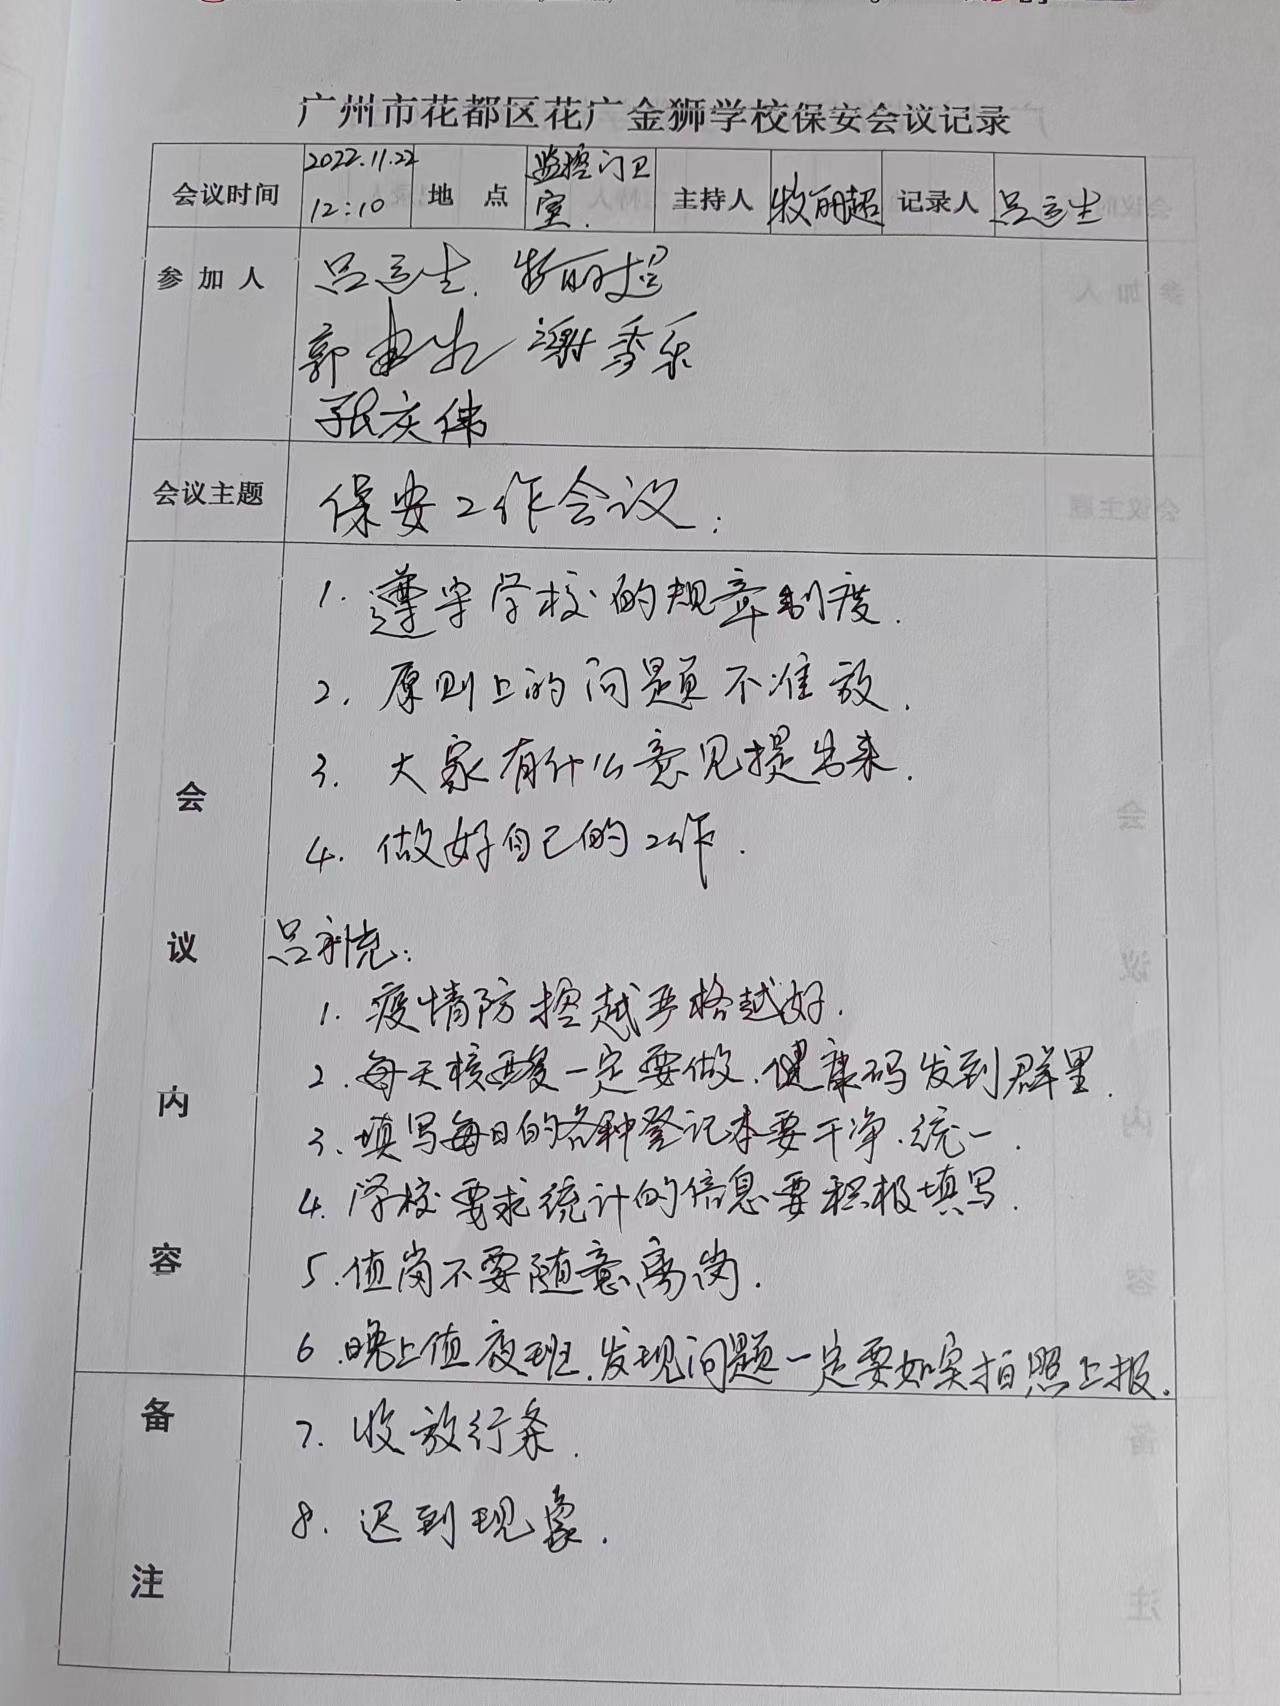 广州市花都区花广金狮学校保安会议记录
会议时间 2022.11.22 12:10 地点 监控门卫室. 主持人 牧丽超 记录人 吕
参加人 吕 牧丽超
郭 谢香乐
张庆伟
会议主题 保安工作会议.
会议内容
1. 遵守学校的规章制度.
2. 原则上的问题不准放.
3. 大家有什么意见提出来.
4. 做好自己的工作.
吕
1. 疫情防控越严格越好.
2. 每天核酸一定要做.健康码发到群里.
3. 填写每日的各种登记本要干净.统一.
4. 学校要求统计的信息要积极填写.
5. 值岗不要随意离岗.
6. 晚上值夜班.发现问题一定要如实拍照上报.
备注
7. 收放行条.
8. 迟到现象.